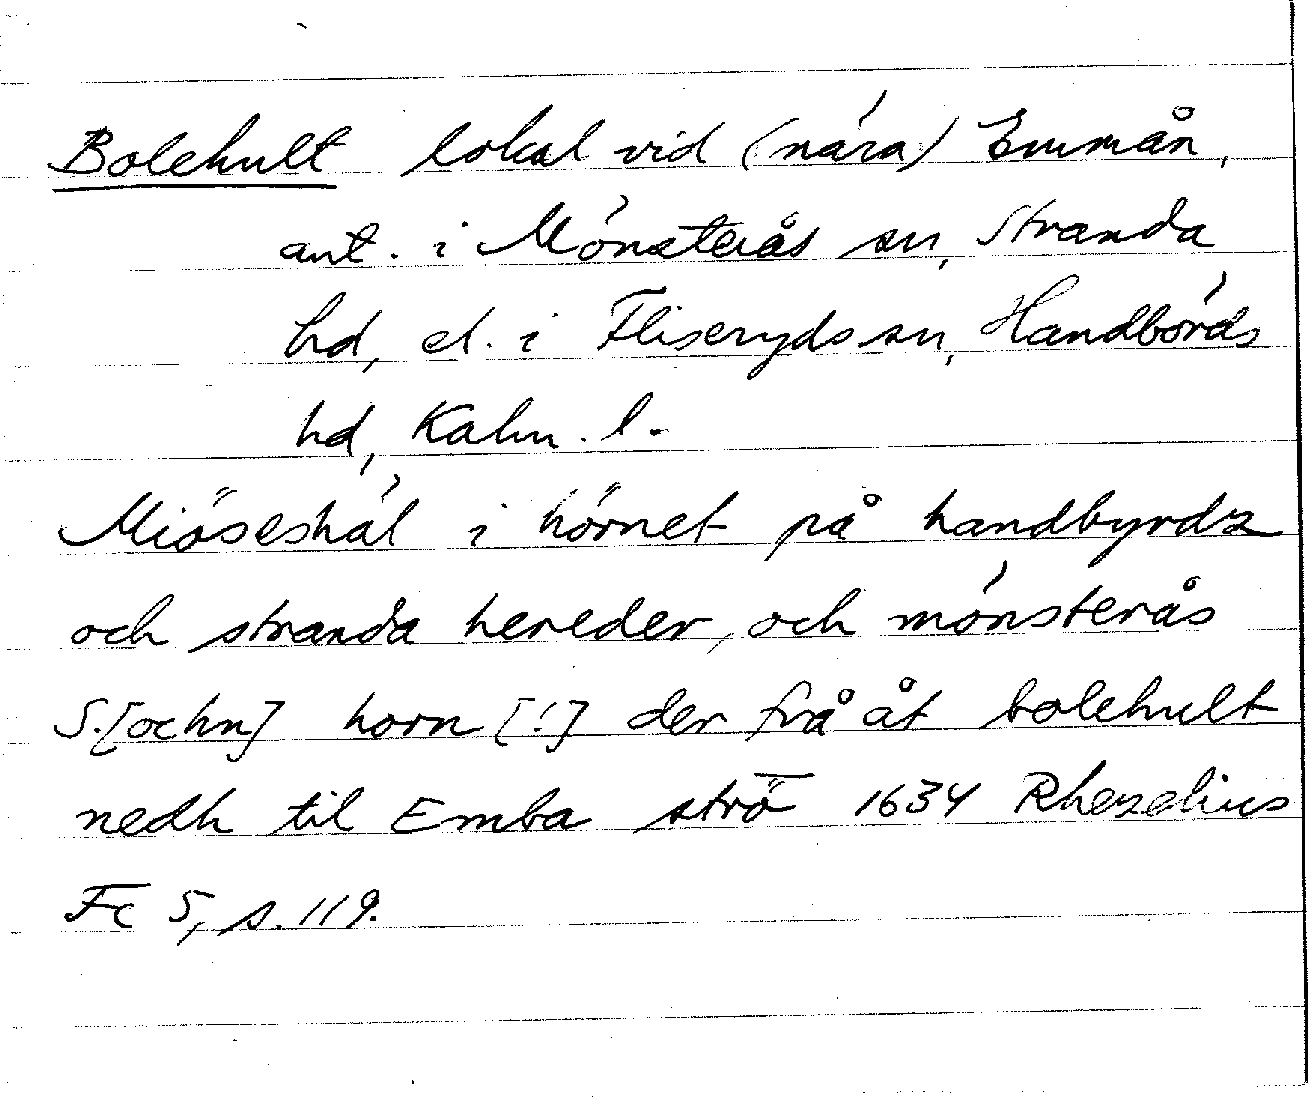 Bolehult lokal vid (nära) Emmån,
ant. i Mönsterås sn, Stranda
hd, el. i Fliseryds sn, Handbörds
hd, Kalm. l.
Miöseshäl i hörnet på handbyrdz
och stranda hereder, och mönsterås
S.[ochn] horn [!] der frå åt bolehult
nedh til Emba strö̅ 1634 Rhezelius
Fc 5, s. 119.